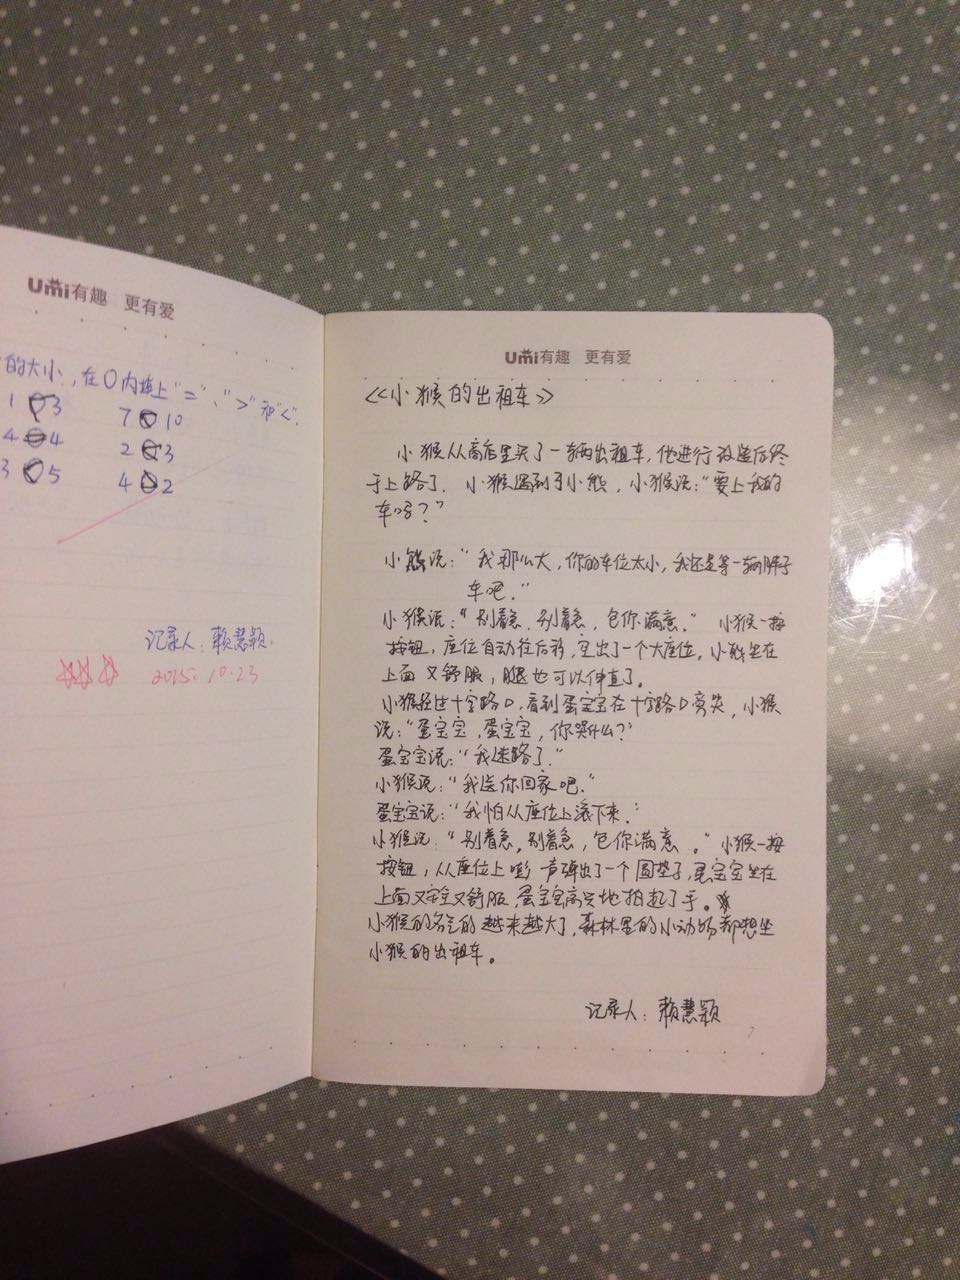 Umi有趣 更有爱
的大小,在○内填上"="、">"和"<".
1 3 7 10
4 4 2 3
3 5 4 2
记录人:赖慧颖.
2015.10.23
Umi有趣 更有爱
<<小猴的出租车>>
小猴从商店里买了一辆出租车,他进行改造后终
于上路了. 小猴遇到了小熊,小猴说:"要上我的
车吗?"
小熊说:"我那么大,你的车位太小,我还是等一辆胖子
车吧."
小猴说:"别着急,别着急,包你满意." 小猴一按
按钮,座位自动往后移,空出了一个大座位,小熊坐在
上面又舒服,腿也可以伸直了.
小猴经过十字路口,看到蛋宝宝在十字路口旁哭,小猴
说:"蛋宝宝,蛋宝宝,你哭什么?"
蛋宝宝说:"我迷路了."
小猴说:"我送你回家吧."
蛋宝宝说:"我怕从座位上滚下来."
小猴说:"别着急,别着急,包你满意。"小猴一按
按钮,从座位上嘭 声弹出了一个圆垫子,蛋宝宝坐在
上面又安全又舒服,蛋宝宝高兴地拍起了手。
小猴的名气的越来越大了,森林里的小动物都想坐
小猴的出租车。
记录人:赖慧颖